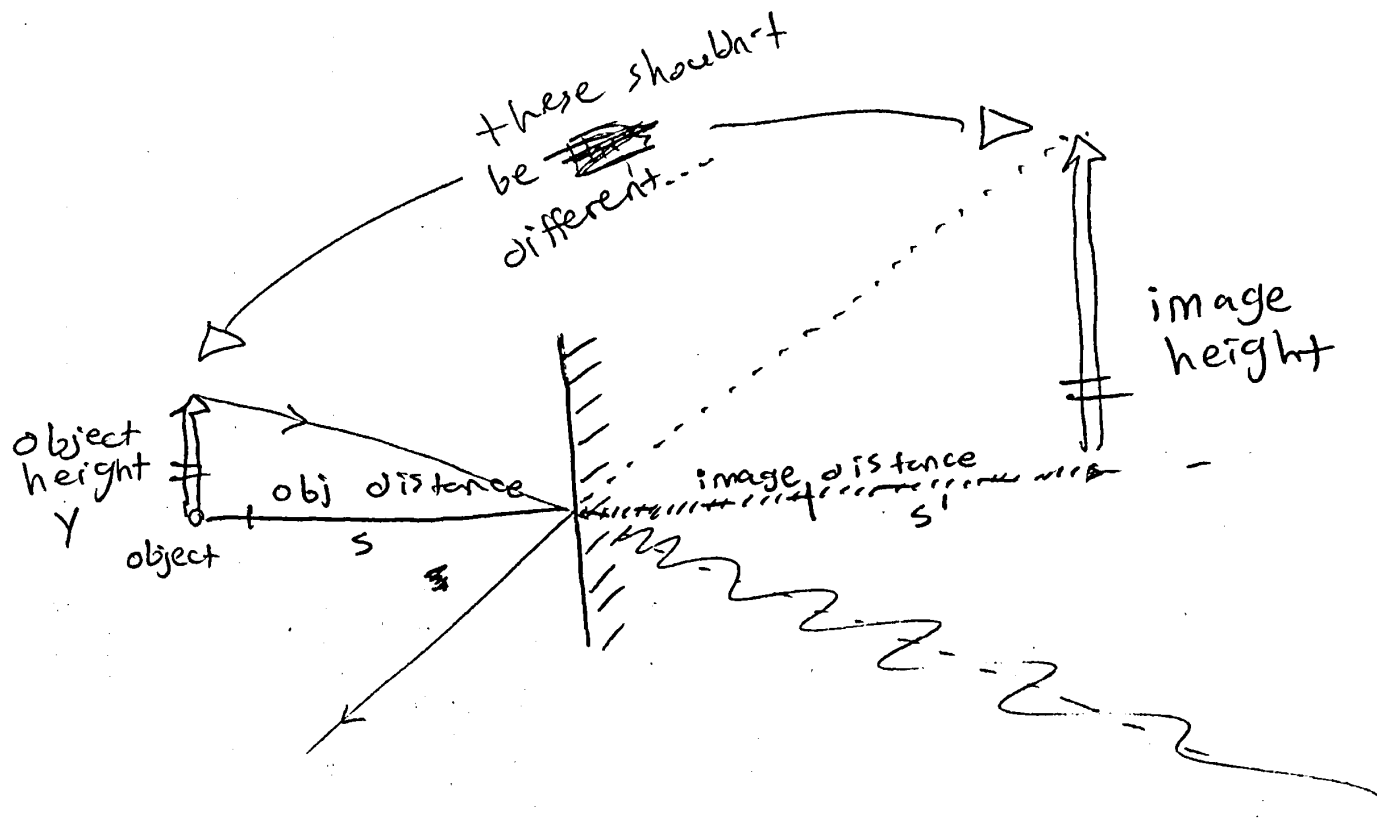 these shouldn't
be
different...
image
height
object
height
Y
obj distance
s
object
image distance
s'